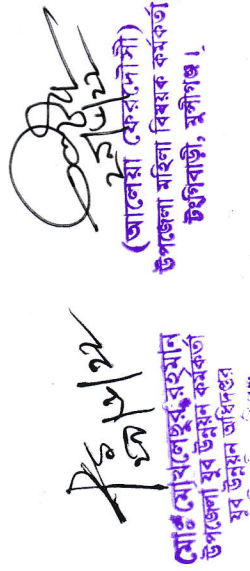 ২৯/৮/২২
(আলেয়া ফেরদৌসী)
উপজেলা মহিলা বিষয়ক কর্মকর্তা
টংগিবাড়ী, মুন্সীগঞ্জ।
মোঃ মোখলেছুর রহমান
উপজেলা যুব উন্নয়ন কর্মকর্তা
যুব উন্নয়ন অধিদপ্তর